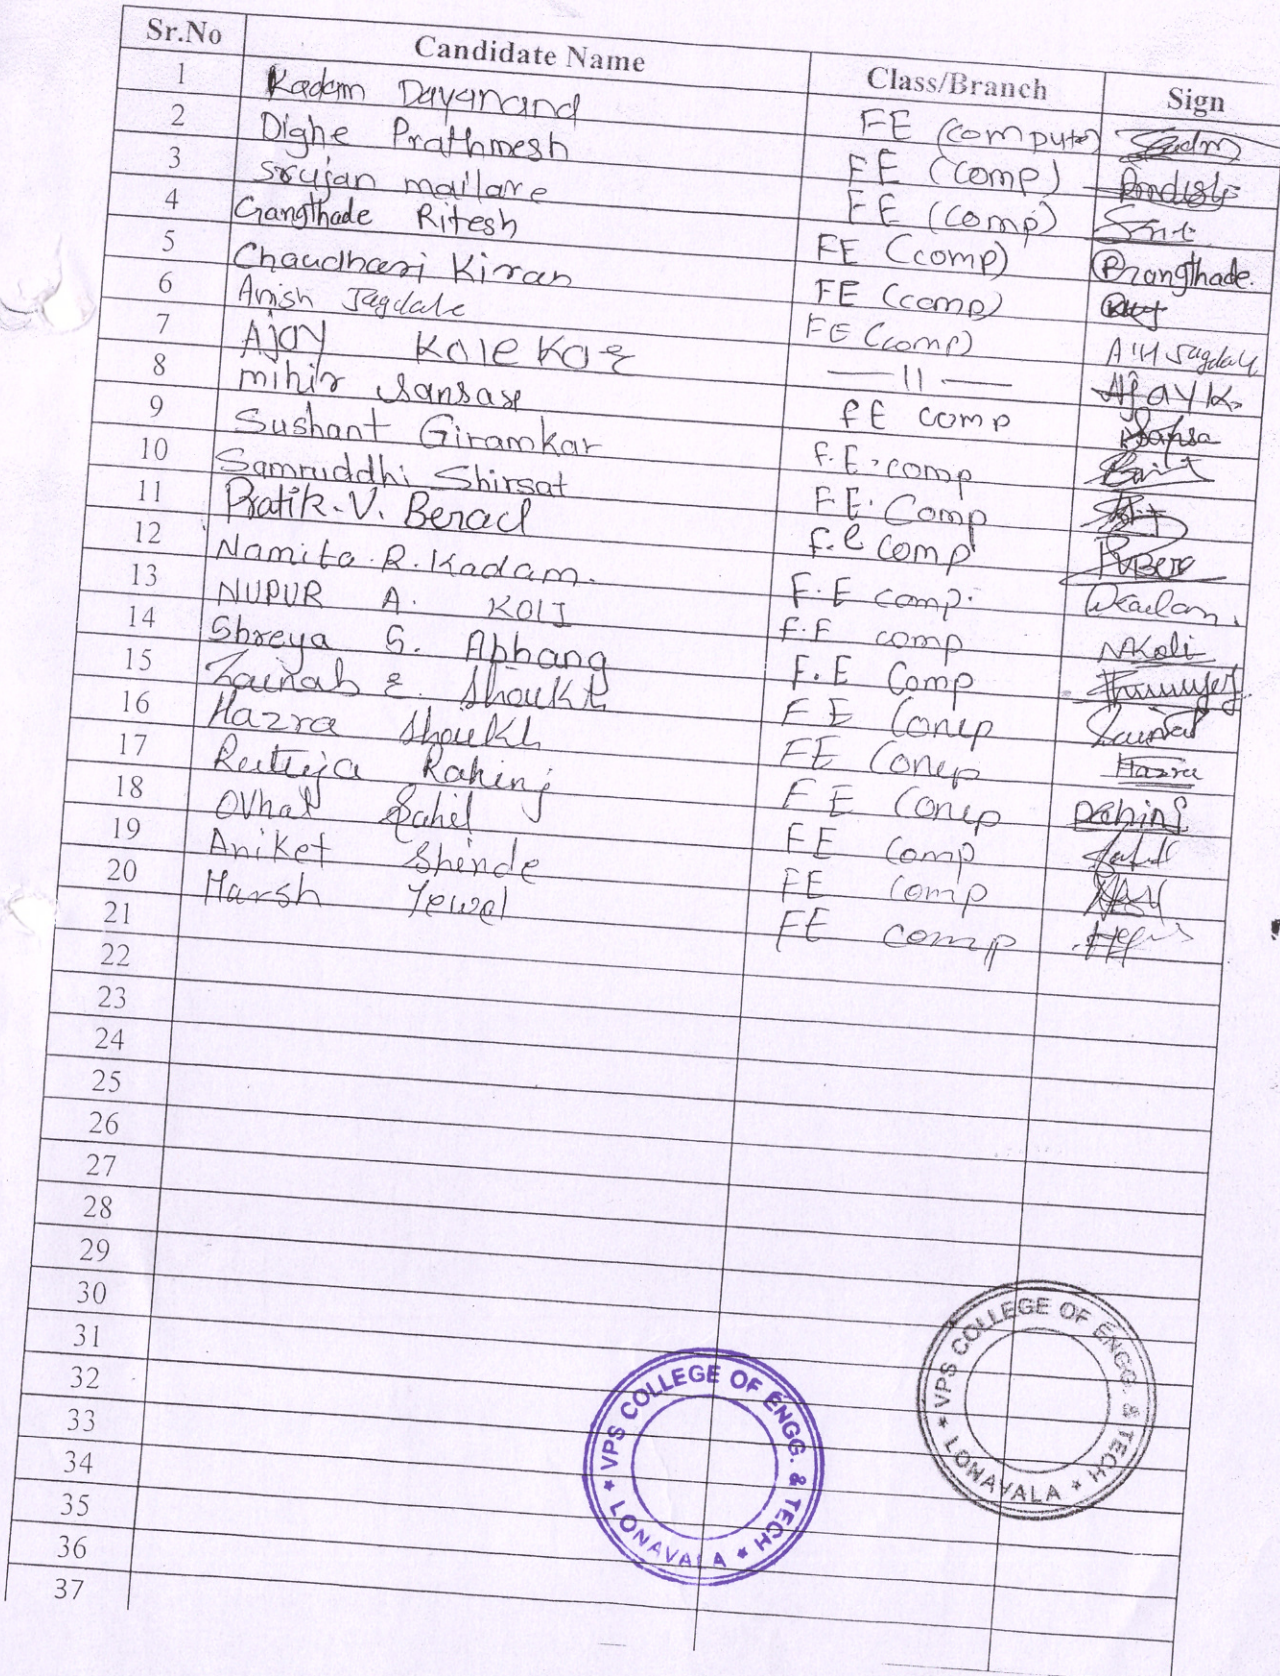 Sr.No Candidate Name Class/Branch Sign
1 Kadam Dayanand FE (computer)
2 Dighe Prathmesh FE (comp)
3 Srujan mailare FE (comp)
4 Gangthade Ritesh FE (comp) Rgangthade.
5 Chaudhari Kiran FE (comp)
6 Anish Jagdale FE (comp)
7 Ajay Kolekar —— 11 —— Ajay K.
8 mihir sansare FE comp
9 Sushant Giramkar F.E. comp
10 Samruddhi Shirsat F.E. Comp
11 Pratik. V. Berad f.e comp
12 Namita. R. Kadam. F.E comp.
13 NUPUR A. KOLI F.E comp NAKoli
14 Shreya S. Abhang F.E Comp
15 Zainab E. Shaikh FE Comp Zainab
16 Hazra Shaikh FE Comp Hazra
17 Rutuja Rahinj FE Comp Rahinj
18 Ovhal Sahil FE Comp
19 Aniket Shinde FE Comp
20 Harsh Tewal FE comp
21
22
23
24
25
26
27
28
29
30
31
32
33
34
35
36
37
VPS COLLEGE OF ENGG. & TECH * LONAVALA *
VPS COLLEGE OF ENGG. & TECH * LONAVALA *